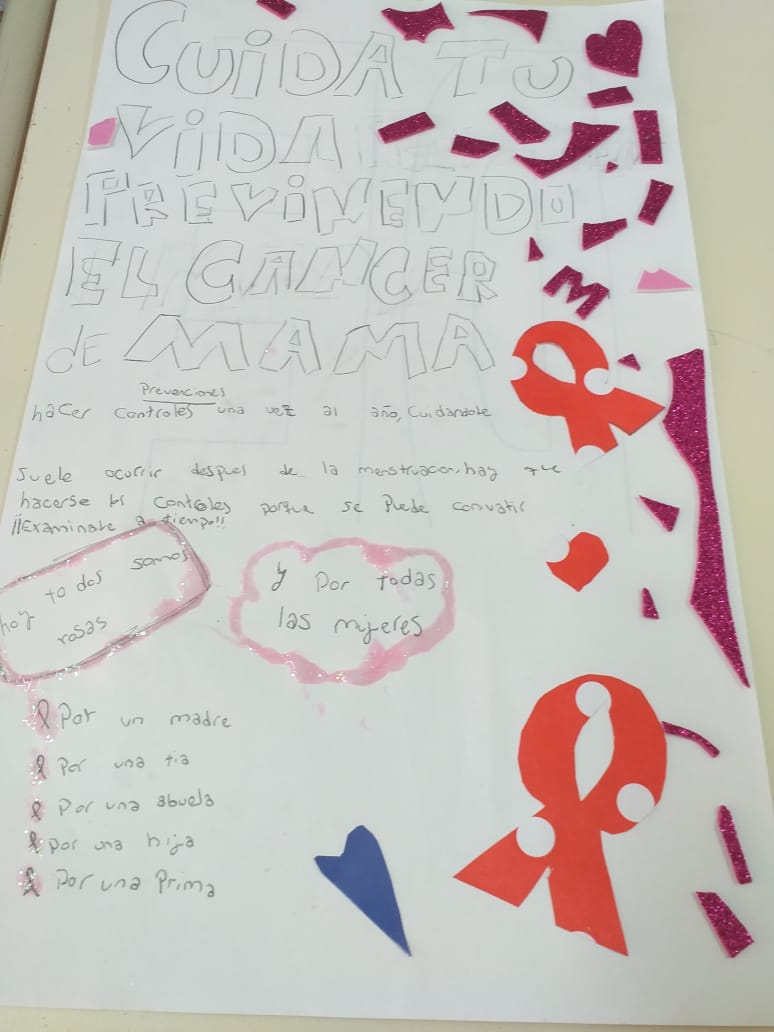 CUIDA TU
VIDA
PREVINENDO
EL CANCER
de MAMA
M
Prevenciones
hacer controles una vez al año, cuidandote
Suele ocurrir despues de la menstruacion, hay que
hacerse los controles porque se puede convatir
¡¡Examinate a tiempo!!
hoy todos somos
rosas
y por todas
las mijeres
Por un madre
Por una tia
Por una abuela
por una hija
Por una Prima